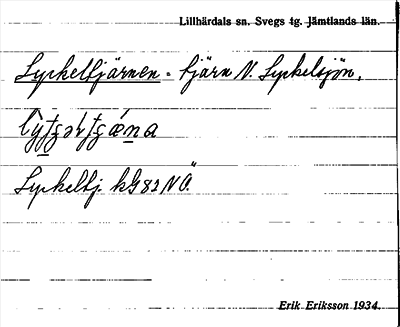 Lillhärdals sn. Svegs tg. Jämtlands län.
Lyckeltjärnen - tjärn N. Lyckelsjön.
Lyckeltj. kG 82 NÖ
Erik Eriksson 1934.